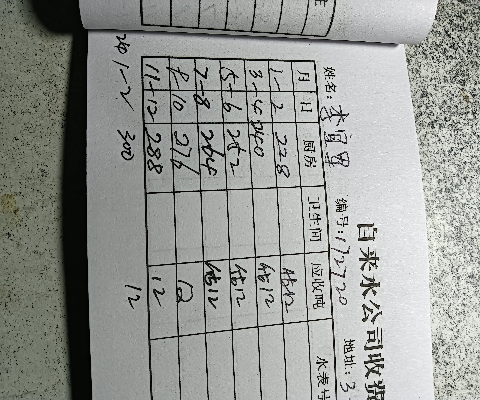 自来水公司收费
姓名: 李宜军 编号: 172720 地址: 3
月 日 厨房 卫生间 应收吨 水表号
1-2 228 估12
3-4 240 估12
5-6 252 估12
7-8 264 估12
9-10 276 12
11-12 288 12
1-2 300 12